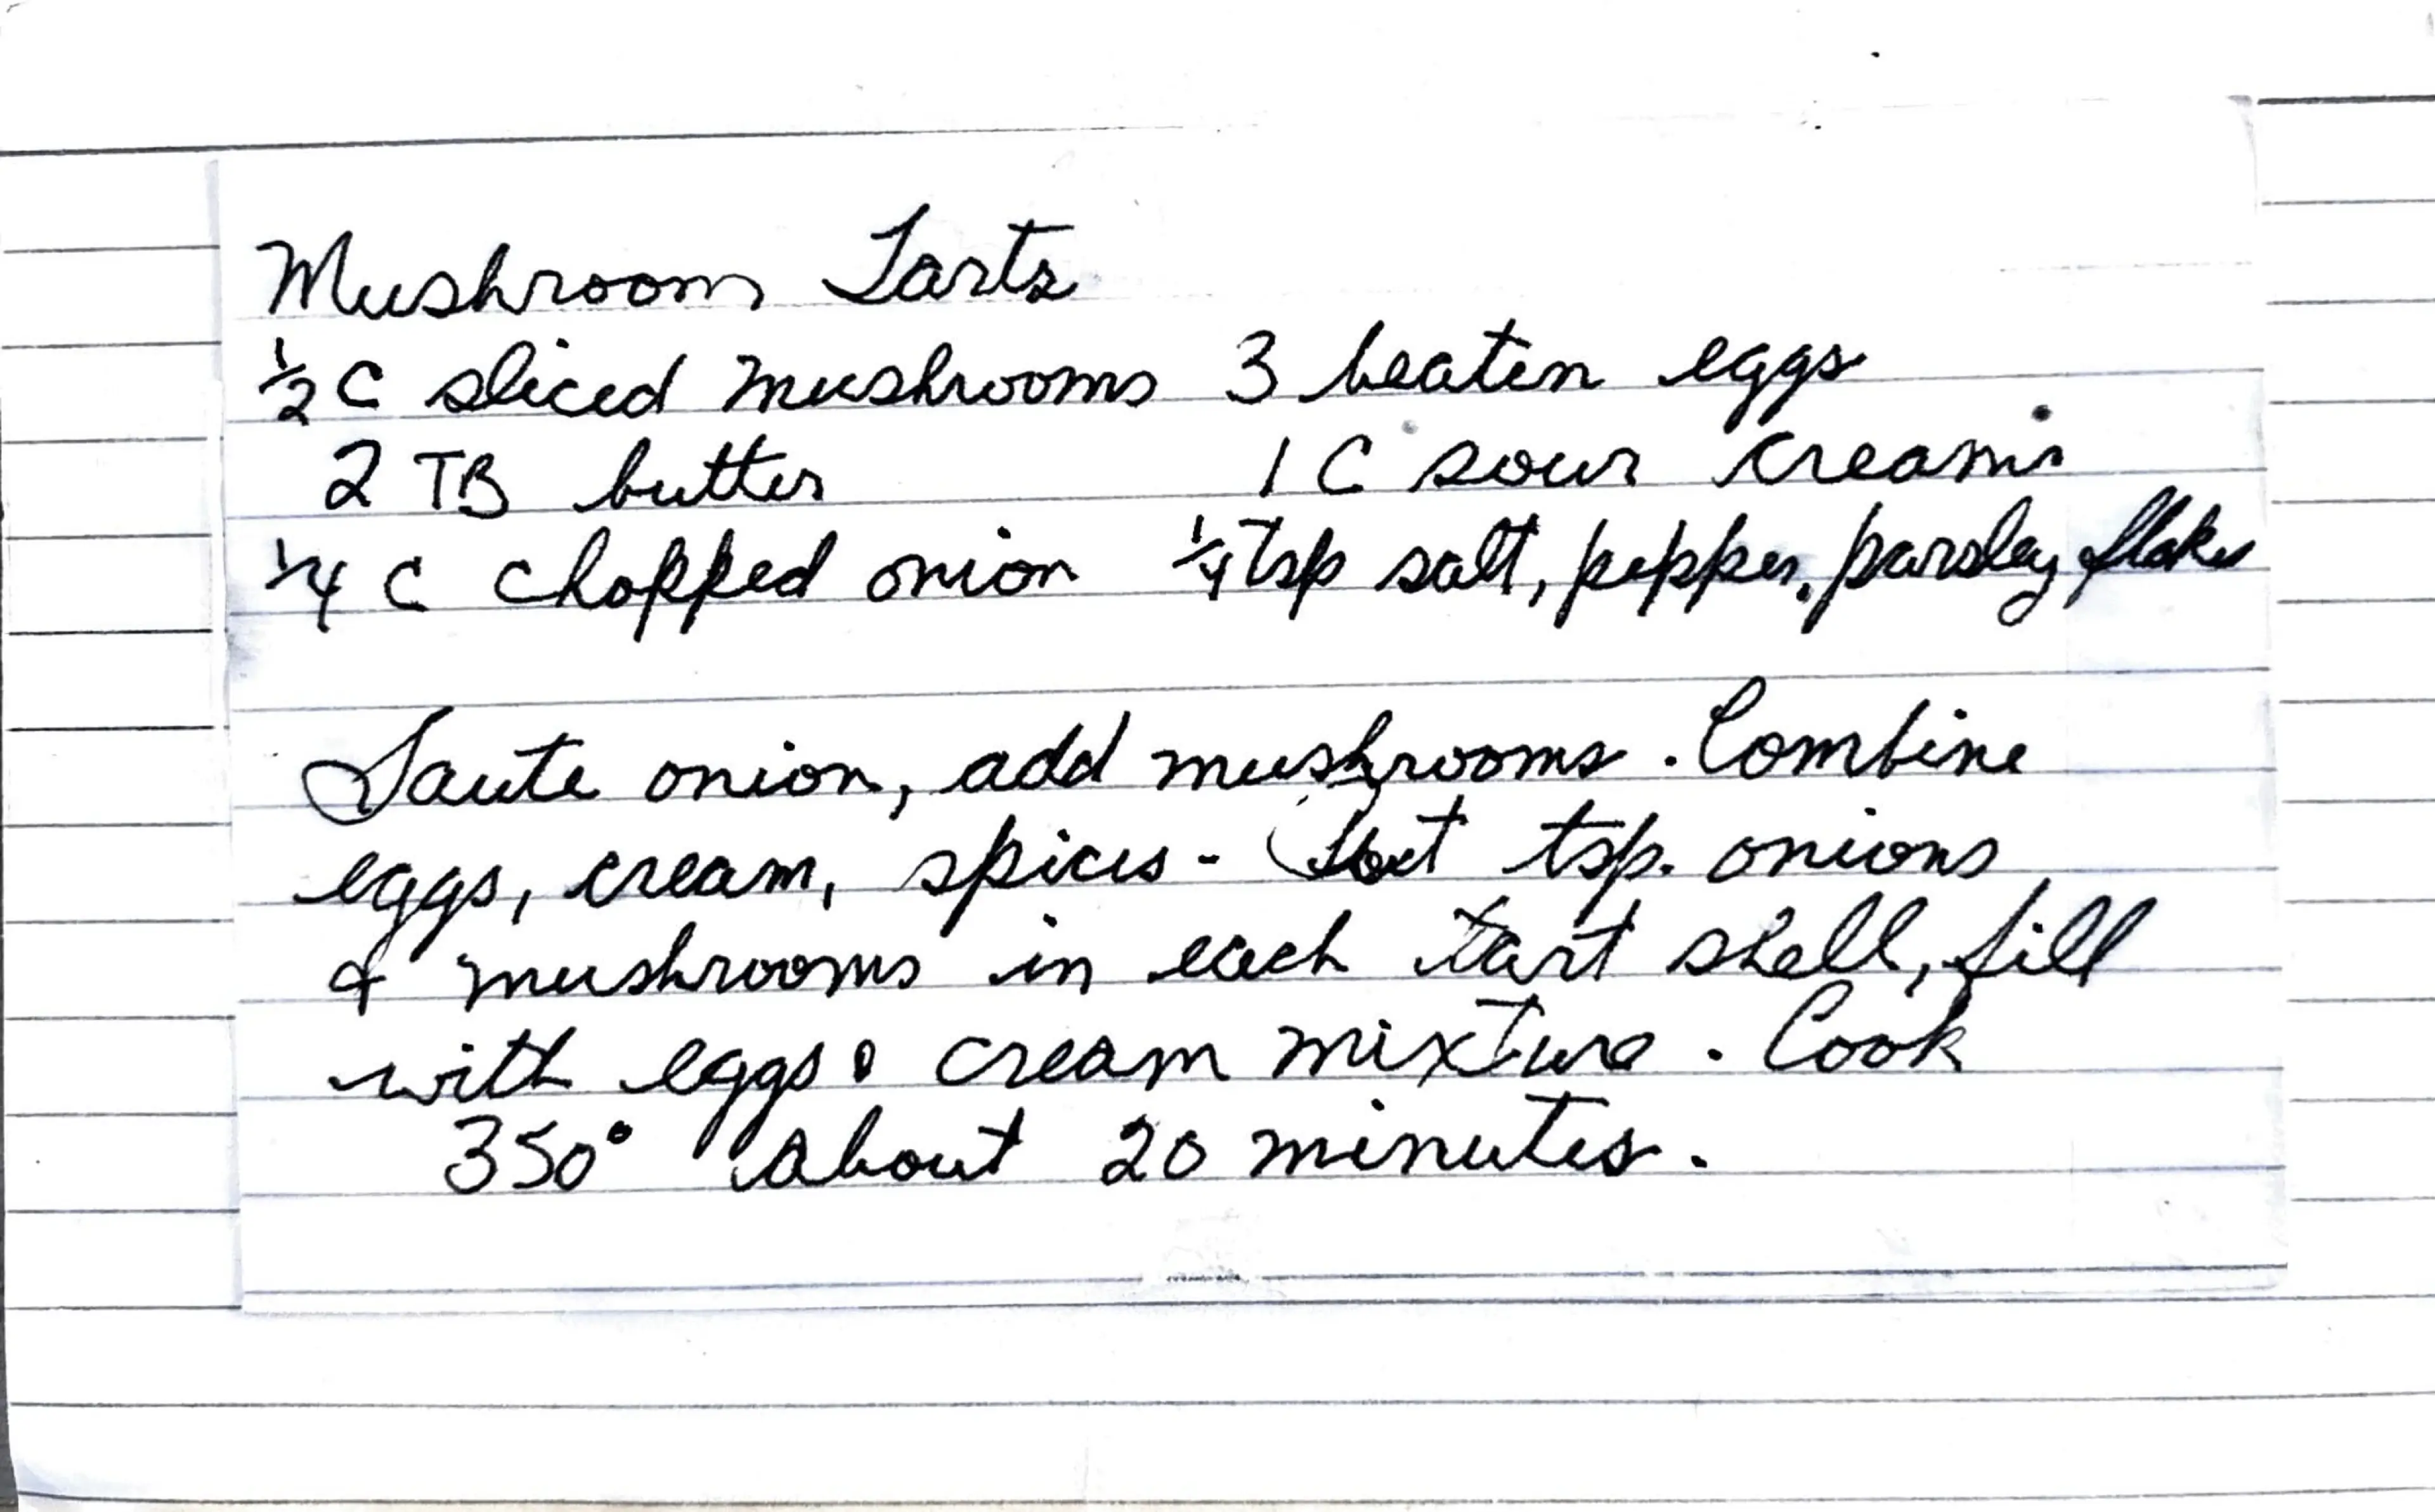 Mushroom Tarts
½ C sliced mushrooms 3 beaten eggs
2 TB butter 1 C sour cream
¼ C chopped onion ¼ tsp salt, pepper, parsley flakes
Saute onion, add mushrooms. Combine
eggs, cream, spices - tsp. onions
& mushrooms in each tart shell, fill
with eggs & cream mixture. Cook
350° about 20 minutes.